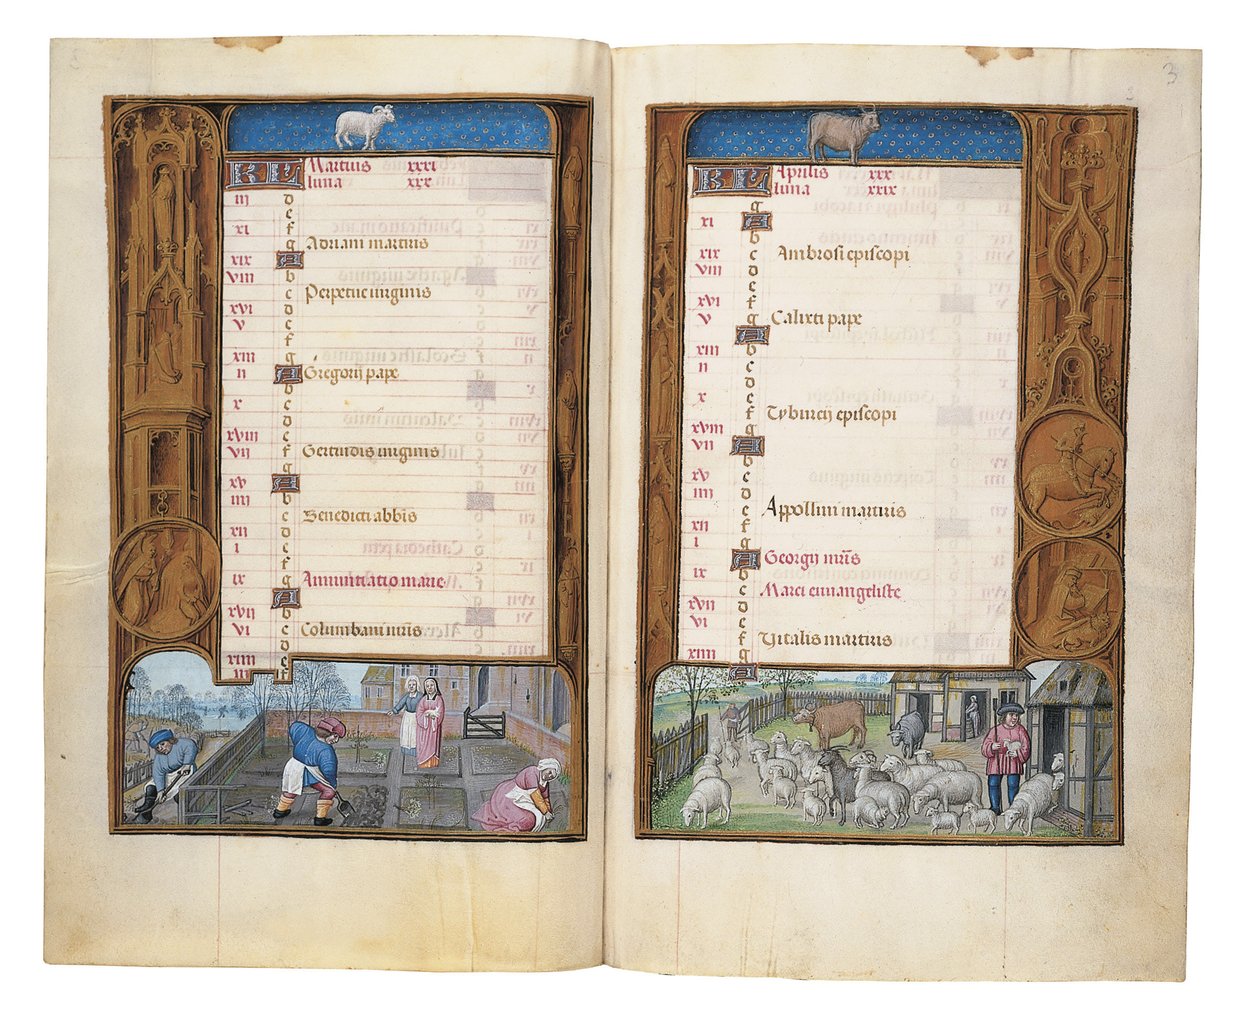 KL Martius xxxi
luna xxx
iii d
e
xi f
g Adriani martiris
xix A
viii b
c Perpetue uirginis
xvi d
v e
f
xiii g
ii A Gregorij pape
b
x c
d
xviii e
vii f Gertrudis uirginis
g
xv A
iiii b
c Benedicti abbis
xii d
i e
f
ix g Annuntiatio marie
A
xvii b
vi c Columbani mris
d
xiiii e
iii f
3
3
KL Aprilis xxx
luna xxix
g
xi A
b
xix c Ambrosi episcopi
viii d
e
xvi f
v g Calixti pape
A
xiii b
ii c
d
x e
f Tyburcij episcopi
xviii g
vii A
b
xv c
iiii d
e Appollini martiris
xii f
i g
A Georgij mris
ix b
c Marci euuangeliste
xvii d
vi e
f Vitalis martiris
xiiii g
A